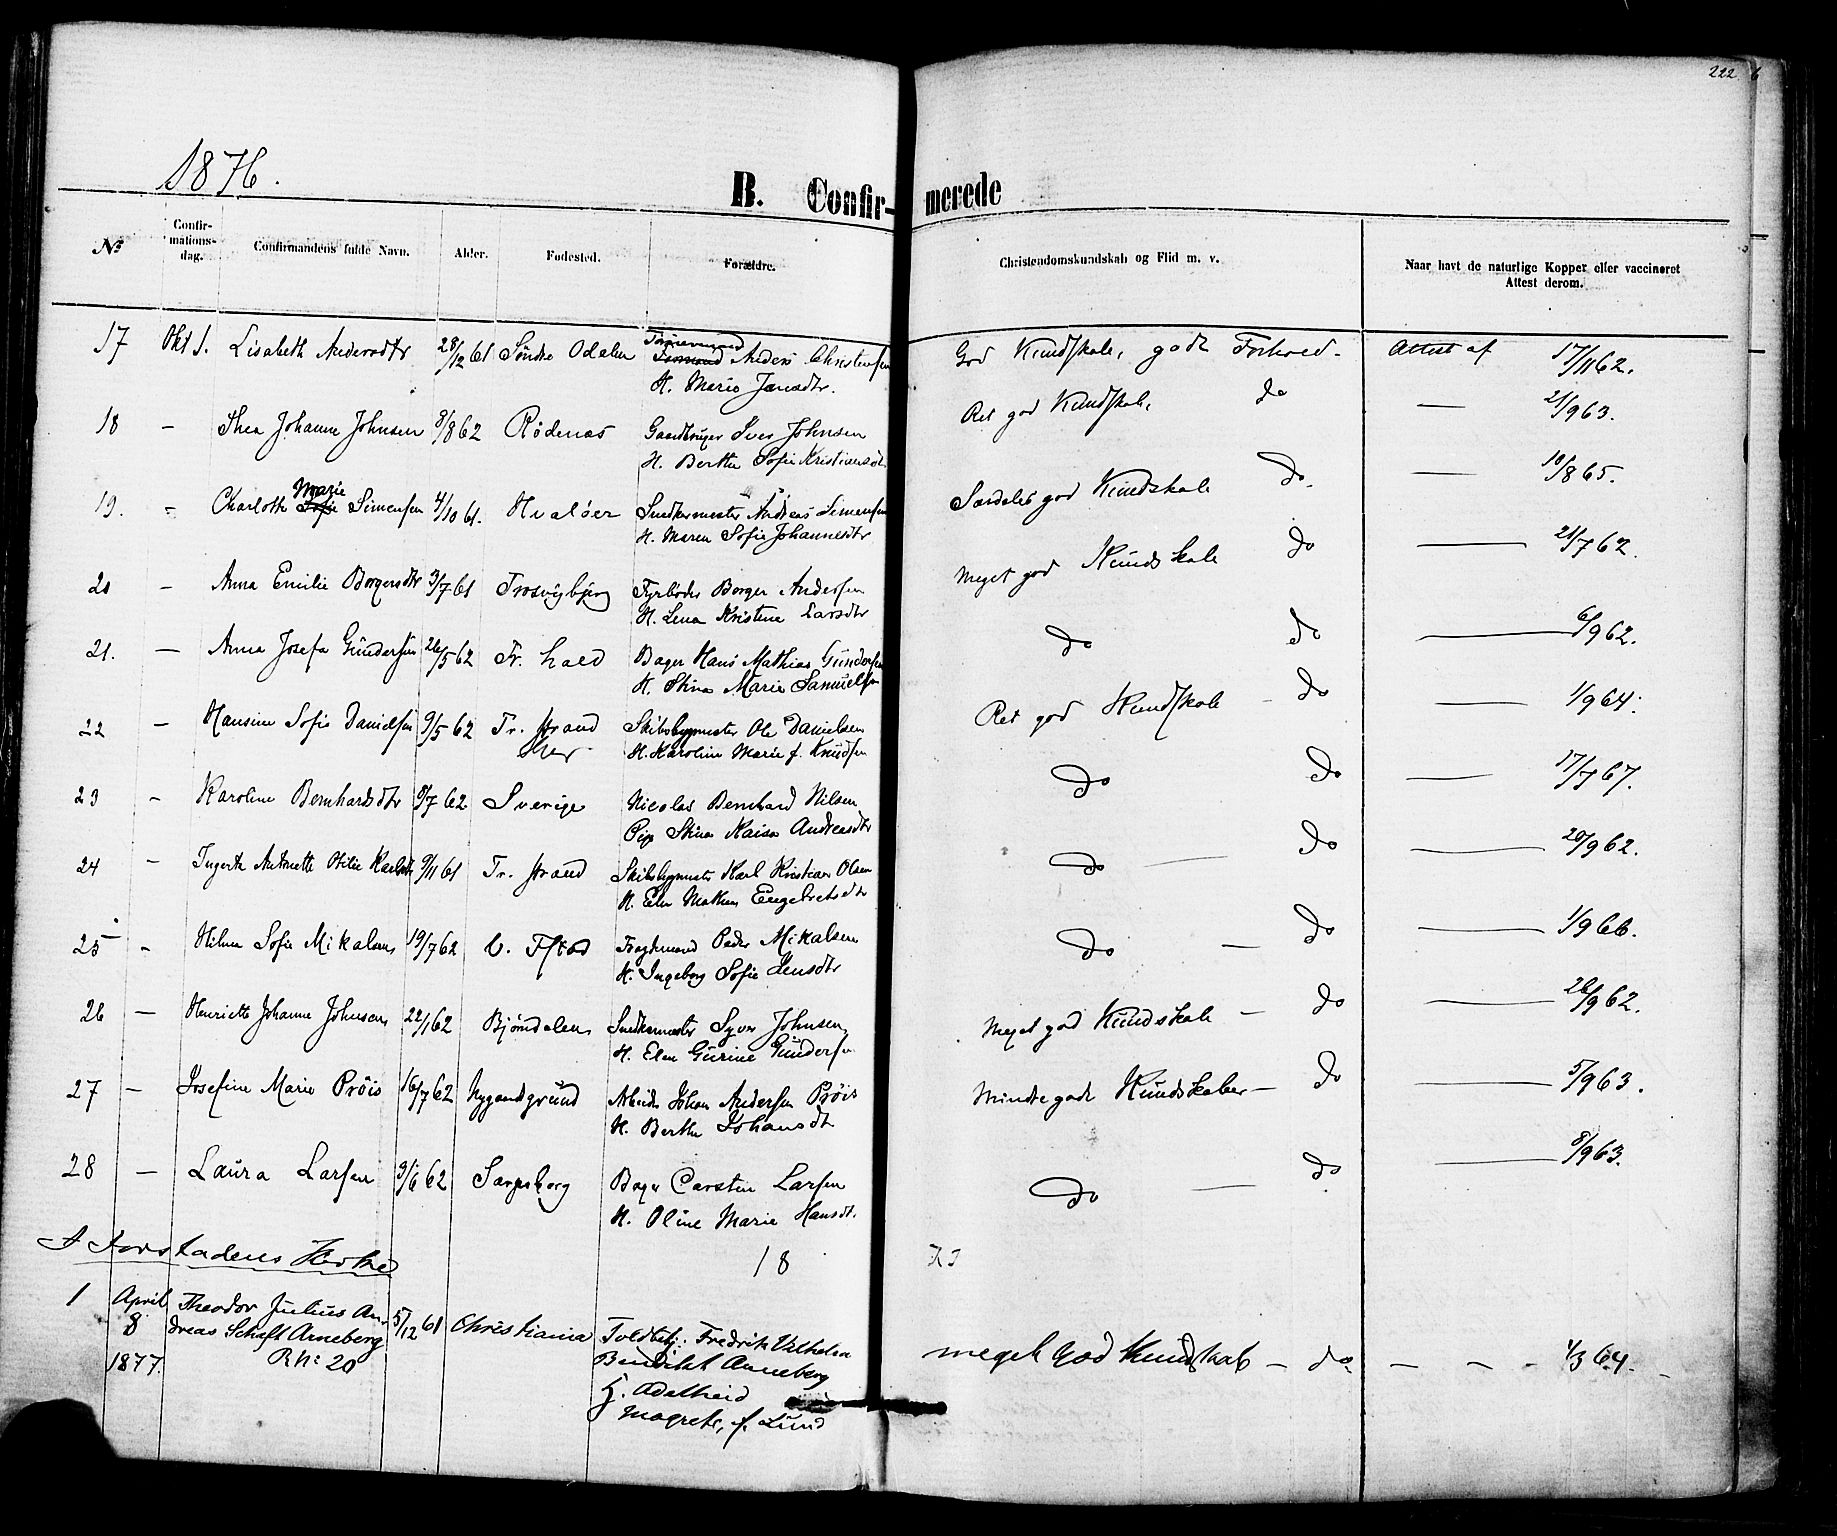 222
6
1876.
B. Confir-merede
No
Confir-
mations-
dag.
Confirmandens fulde Navn.
Alder.
Fødested.
Forældre.
Christendomskundskab og Flid m. v.
Naar havt de naturlige Kopper eller vaccineret
Attest derom.
17 Okt 1. Lisabeth Andersdtr 28/12 61 Söndre Odalen Anders Christensen God Kundskab, godt Forhold. Attest af 17/11 62.
H. Marie Jensdtr.
18 - Thea Johanne Johnsen 8/8 62 Rödenæs Gaardbruger Iver Johnsen Ret god Kundskab, do — 21/9 63.
H. Berthe Sofie Kristiansdtr
Marie
19. - Charlotte Sofie Simensen 4/10 61. Hvaløer Snedkermester Andreas Simensen Særdeles god Kundskab do. — 10/8 65.
H. Maren Sofie Johannesdtr
20 - Anna Emilie Borgersdtr 3/7 61 Trosvigbjerg Fyrbøder Borger Andersen Meget god Kundskab do — 21/7 62.
H. Lena Kristine Larsdtr
21. - Anna Josefa Gündersen 26/5 62 Fr. hald Bager Hans Mathias Gundersen do do — 6/9 62.
H. Stina Marie Samuelsen
22 - Hansine Sofie Danielsen 9/5 62 Fr. strand Skibsbygmester Ole Danielsen Ret god Kundskab - do — 1/9 64.
H. Karoline Marie f. Knüdsen
23 - Karoline Bernhardsdtr 8/7 62 Sverige Nicolas Bernhard Nilsen do do — 17/7 67.
Pige Stina Kaisa Andreasdtr
24 - Antonette Otilie 9/11 61 Fr. strand Skibsbygmester Karl Kristian Olsen do — do — 20/9 62.
H. Elen Mathea Engebretsdtr
25 - Hilma Sofie Mikalsen 19/7 62 V. Fstad Fragtemand Peder Mikalsen do — do — 1/9 66.
H. Ingeborg Sofie Jensdtr
26 - Henriette Johanne Johnsen 22/1 62 Bjørndalen Snedkermester Syver Johnsen Meget god Kundskab - do — 26/9 62.
H. Elen Gurine Gundersen
27 - Josefine Marie Pröis 16/7 62 Nygaardsgrund Arbeider Johan Andersen Pröis Mindre gode Kundskaber - do — 5/9 63.
H. Berthe Johansdtr
28 - Laura Larsen 3/6 62 Sarpsborg Bager Carsten Larsen do — do — 8/9 63.
H. Oline Marie Hansdtr.
I Forstadens Kirke
18
1 April Theodor Julius An- 5/12 61 Christiania Toldbetj: Fredrik Vilhelm meget god Kundskab - do - - - 1/3 64.
8 dreas Schaft Arneberg Bendikt Arneberg
1877. R No 20 H. Adelheid
Magrete, f. Lund